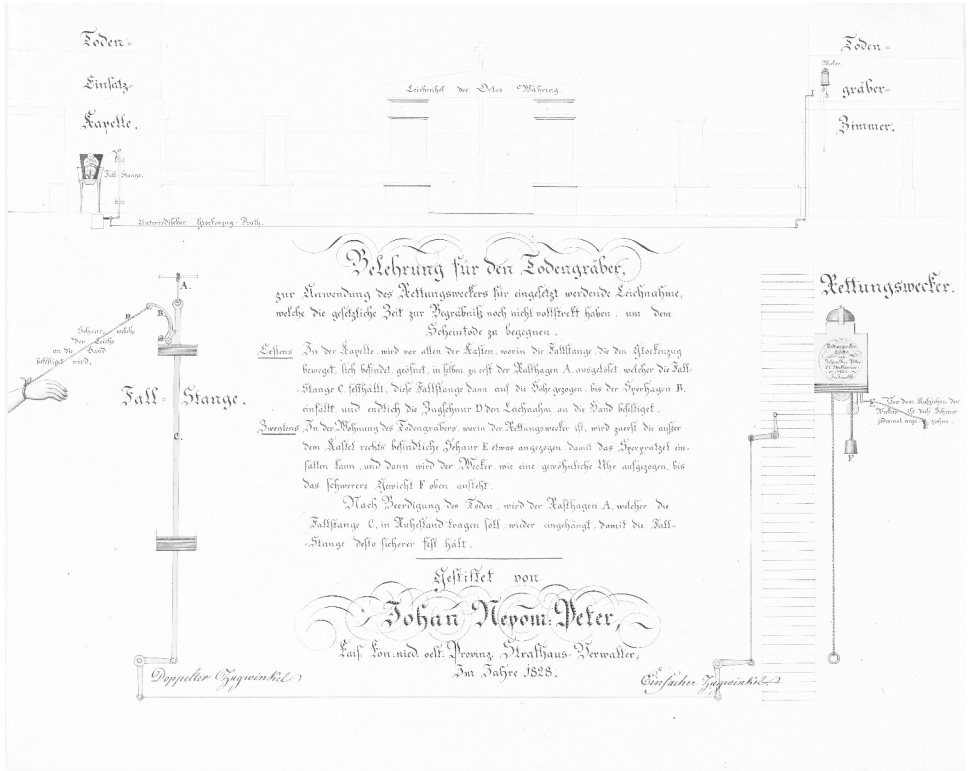 Toden-
Einsatz-
Kapelle.
Fall Stange.
Unterirdischer Glockenzug-Drath.
Leichenhof des Ortes Währing.
Wecker.
Toden-
gräber-
Zimmer.
Belehrung für den Todengräber,
zur Anwendung des Rettungsweckers für eingesetzt werdende Leichname,
welche die gesetzliche Zeit zur Begräbniß noch nicht vollstrekt haben, um dem
Scheintode zu begegnen.
Erstens In der Kapelle, wird vor allen der Kasten, worin die Fallstange, die den Glockenzug
beweget, sich befindet, geöfnet, in selben zu erst der Rasthagen A, ausgelöst welcher die Fall-
-Stange C, festhällt, diese Fallstange dann auf die Höhe gezogen, bis der Sperhagen B,
einfällt, und endlich die Zugschnur D den Leichnam an die Hand befestiget.
Zweytens In der Wohnung des Todengräbers, worin der Rettungswecker ist, wird zuerst die außer
dem Kastel rechts befindliche Schnur E etwas angezogen, damit das Sperpratzel ein-
fallen kann, und dann wird der Wecker, wie eine gewöhnliche Uhr aufgezogen, bis
das schwerere Gewicht F oben ansteht.
Nach Beerdigung des Toden, wird der Rasthagen A, welcher die
Fallstange C, in Ruhestand tragen soll, wieder eingehängt, damit die Fall-
-Stange desto sicherer fest hält.
Gestiftet von
Johan Nepom: Peter,
Kais. Kön. nied. oest. Provinz. Strafhaus-Verwalter,
Im Jahre 1828.
A.
B
D
Schnur, welche
der Leiche
an die Hand
befestiget wird.
Fall-Stange.
C.
Doppelter Zugwinkel
Rettungswecker.
Vor dem Aufziehen des
Weckers ist diese Schnur
jedesmal anzuziehen.
E
F
Einfacher Zugwinkel